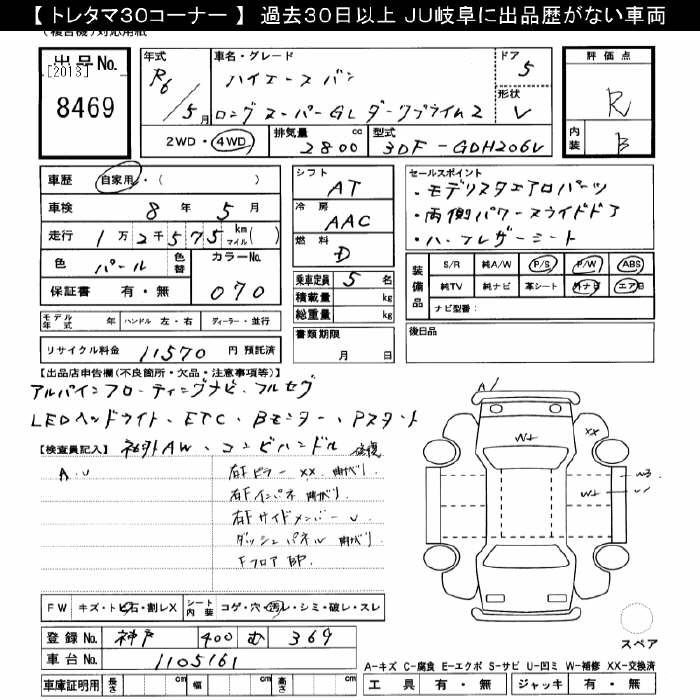 【 トレタマ30コーナー 】 過去30日以上 JU岐阜に出品歴がない車両
(複合機)対応用紙
出品No. [2013] 8469
年式 R6/5月
車名・グレード ハイエースバン
ロングスーパーGL ダークプライム2
ドア 5
形状 V
評価点 R
内装 B
2WD・4WD 排気量 2800 cc 型式 3DF-GDH206V
車歴 自家用・( )
車検 8年 5月
走行 1万2千575 km マイル( )
色 パール 色替 カラーNo. 070
保証書 有・無
モデル年式 年 ハンドル 左・右 ディーラー・並行
リサイクル料金 11570 円 預託済
シフト AT
冷房 AAC
燃料 D
乗車定員 5 名
積載量 kg
総重量 kg
書類期限 月 日
セールスポイント
・モデリスタエアロパーツ
・両側パワースライドドア
・ハーフレザーシート
装備品 S/R 純A/W P/S P/W ABS
純TV 純ナビ 革シート 外ナビ エアB
ナビ型番:
後日品
【出品店申告欄(不良箇所・欠品・注意事項等)】
アルパインフローティングナビ・フルセグ
LEDヘッドライト・ETC・Bモニター・Pスタート
【検査員記入】 社外AW・コンビハンドル 修復
A.U
右Fピラー XX. 曲がり
右Fインパネ 曲がり
右Fサイドメンバー
ダッシュパネル 曲がり
Fフロア
A
W
XX
W3
W
FW キズ・トビ石・割レX シート内装 コゲ・穴・汚レ・シミ・破レ・スレ
登録No. 神戸 400 む 369
車台No. 1105161
車庫証明用 長さ cm 幅 cm 高さ cm
スペア
A-キズ C-腐食 E-エクボ S-サビ U-凹ミ W-補修 XX-交換済
工具 有・無 ジャッキ 有・無